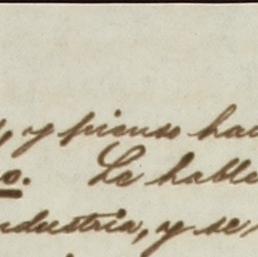 , y pienso ha
o. Le hable
ndustria, y se